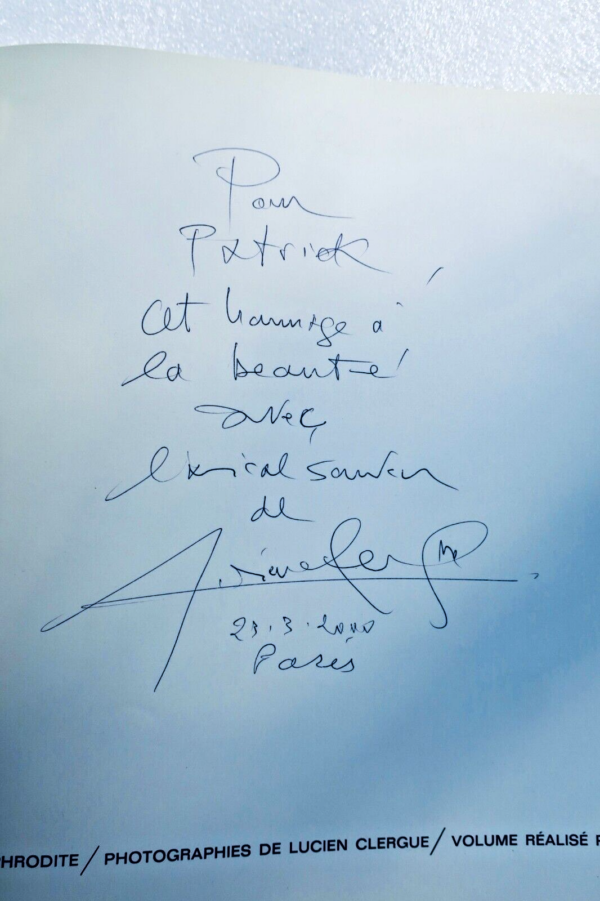 Pour
Patrick
cet hommage à
la beauté
avec
l'amical souvenir
de
23.3.2000
Paris
PHRODITE / PHOTOGRAPHIES DE LUCIEN CLERGUE / VOLUME RÉALISÉ P